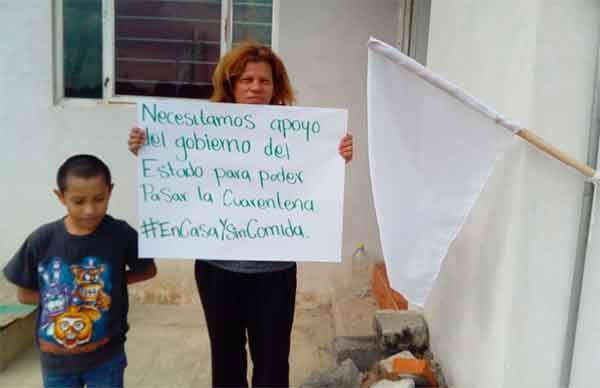 Necesitamos apoyo
del gobierno del
Estado para poder
Pasar la Cuarentena
#EnCasaYSinComida.